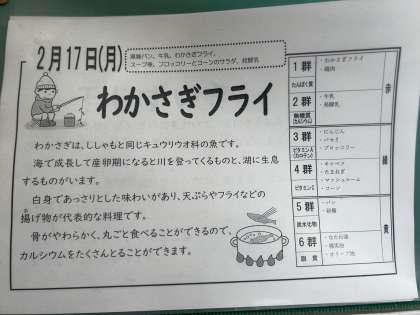 2月17日(月)
黒糖パン、牛乳、わかさぎフライ、
スープ煮、ブロッコリーとコーンのサラダ、発酵乳
わかさぎフライ
わかさぎは、ししゃもと同じキュウリウオ科の魚です。
海で成長して産卵期になると川を登ってくるものと、湖に生息
するものがいます。
白身であっさりとした味わいがあり、天ぷらやフライなどの
揚げ物が代表的な料理です。
骨がやわらかく、丸ごと食べることができるので、
カルシウムをたくさんとることができます。
1群
たんぱく質
・わかさぎフライ
・鶏肉
2群
無機質
(カルシウム)
・牛乳
・発酵乳
赤
3群
ビタミンA
(カロテン)
・にんじん
・パセリ
・ブロッコリー
4群
ビタミンC
・キャベツ
・たまねぎ
・マッシュルーム
・コーン
緑
5群
炭水化物
・パン
・砂糖
6群
脂質
・なたね油
・オリーブ油
黄